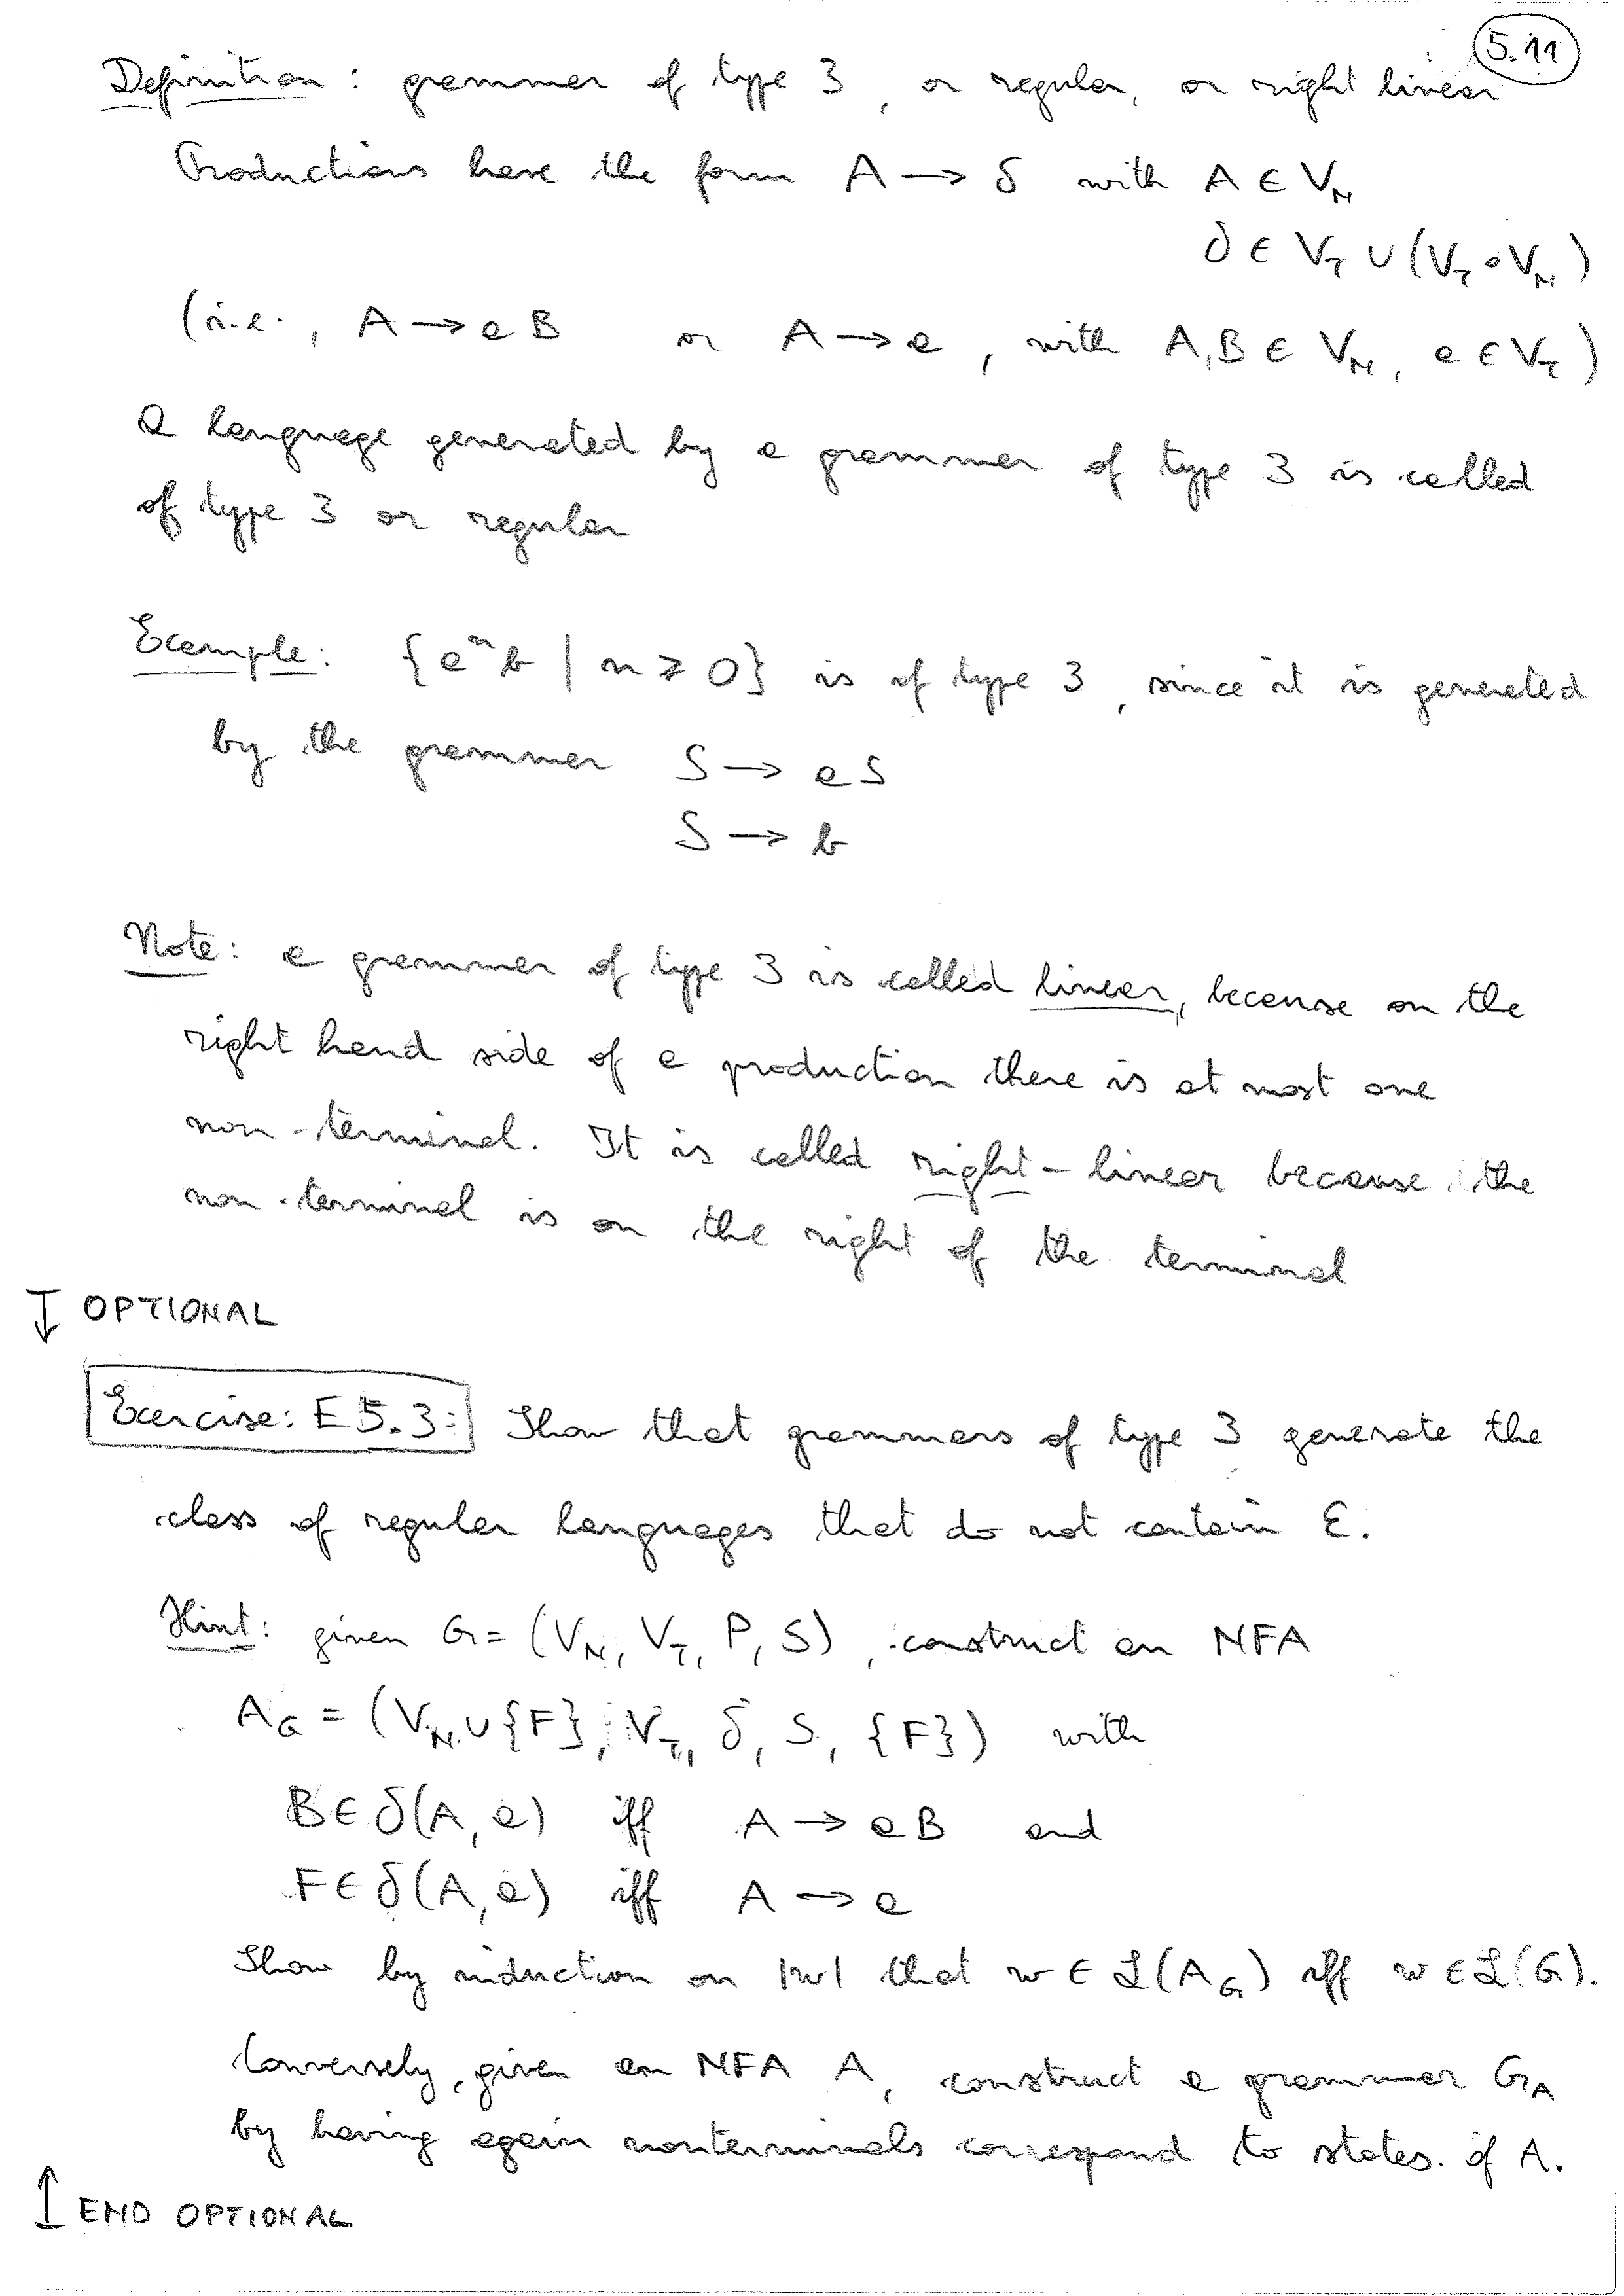 5.11
Definition: grammar of type 3, or regular, or right linear
Productions have the form A → δ with A ∈ V_N
δ ∈ V_T ∪ (V_T ∘ V_N)
(i.e., A → a B or A → a, with A, B ∈ V_N, a ∈ V_T)
A language generated by a grammar of type 3 is called
of type 3 or regular
Example: {aⁿb | n ≥ 0} is of type 3, since it is generated
by the grammar S → a S
S → b
Note: a grammar of type 3 is called linear, because on the
right hand side of a production there is at most one
non-terminal. It is called right-linear because the
non-terminal is on the right of the terminal
↧ OPTIONAL
Exercise: E 5.3: Show that grammars of type 3 generate the
class of regular languages that do not contain ε.
Hint: given G = (V_N, V_T, P, S), construct an NFA
A_G = (V_N ∪ {F}, V_T, δ, S, {F}) with
B ∈ δ(A, a) iff A → a B and
F ∈ δ(A, a) iff A → a
Show by induction on |w| that w ∈ ℒ(A_G) iff w ∈ ℒ(G).
Conversely, given an NFA A, construct a grammar G_A
by having again nonterminals correspond to states of A.
↥ END OPTIONAL